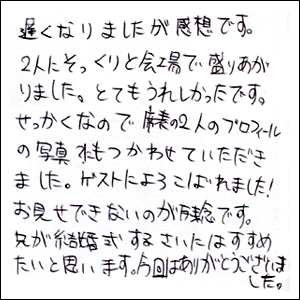 遅くなりましたが感想です。
2人にそっくりと会場で盛りあが
りました。とてもうれしかったです。
せっかくなので 麻美の2人のプロフィール
の写真にもつかわせていただき
ました。ゲストによろこばれました!
お見せできないのが残念です。
兄が結婚式するさいにはすすめ
たいと思います。今回はありがとうございま
した。